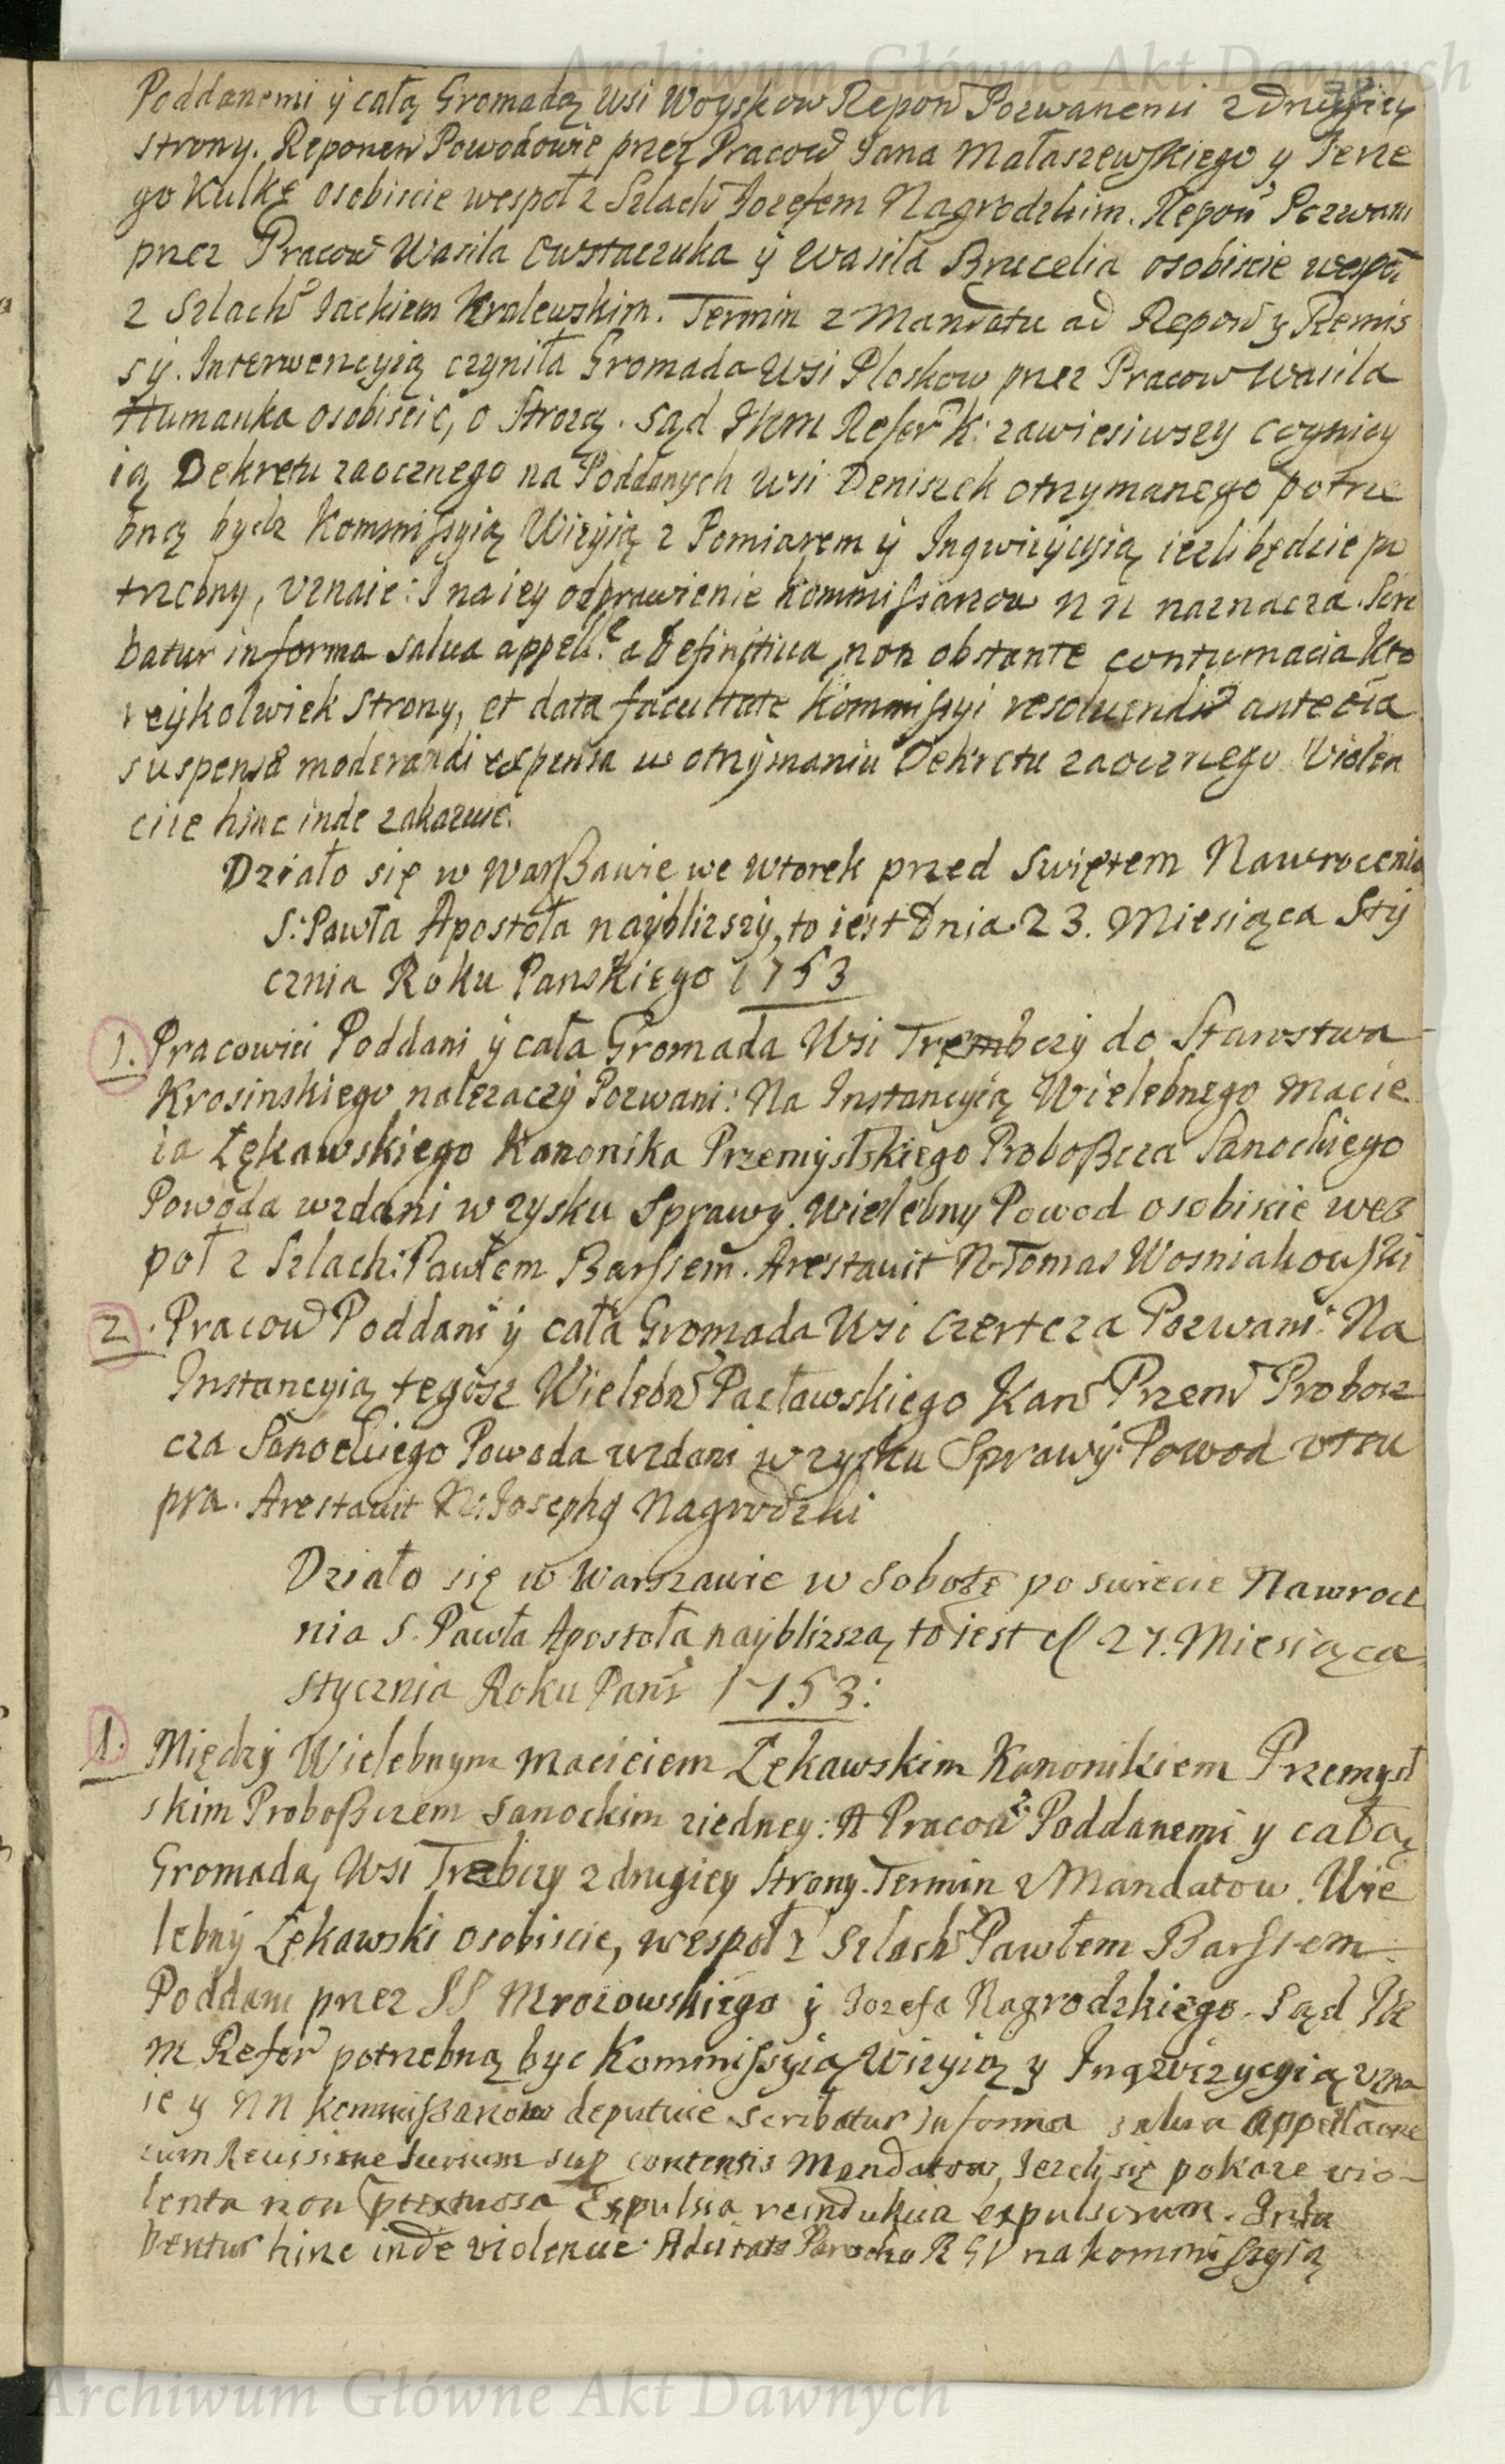 Archiwum Główne Akt Dawnych
Poddanemi y całą Gromadą Wsi Woyskow Repoń Pozwanemi z drugiey
strony. Reponen Powodowie przez Pracow Jana Małaszewskiego y Jerze
go Kulkę osobiscie wespoł z Szlach Jozefem Nagrodzkim. Repoń Pozwani
przez Pracow Wasila Owstaczuka y Wasila Brucelia osobiscie wespoł
z Szlach Jackiem Kralewskim. Termin z Mandatu ad Repoń y Remis
sy. Interwencyią czyniła Gromada Wsi Ploskow przez Pracow Wasila
Humanka osobiscie, o Strozą. Sąd Nem Refer K: zawiesiwszy cognicy
ią Dekretu zaocznego na Poddanych Wsi Deniszek otrzymanego potrze
bną bydz Kommissyią Wizyią z Pomiarem y Ingwizycyią iezli będzie po
trzebny, uznaie: I na iey odprawienie Kommissarzow NN naznacza. Scri
batur in forma salva appell.e a Definitiva, non obstante contumacia kto
reykolwiek strony, et data facultate Kommissyi resolvendi antecia
suspensa moderandi expensa w otrzymaniu Dekretu zaocznego Violen
ciie hinc inde zakazuie.
Działo się w Warßawie we Wtorek przed Swiętem Nawrocenia
S: Pawła Apostoła nayblizszy, to iest Dnia 23. Miesiąca Sty
cznia Roku Panskiego 1753
1. Pracowici Poddani y cała Gromada Wsi Trembczy do Starostwa
Krosinskiego nalezaczy Pozwani: Na Instancyią Wielebnego Macie
ia Łękawskiego Kanonika Przemyslskiego Proboßcza Sanockiego
Powoda wzdani w zysku Sprawy. Wielebny Powod osobiscie wes
poł z Szlach: Pawłem Barssem. Arestavit N Tomas Wosniakowski
2. Pracow Poddani y cała Gromada Wsi Czertcza Pozwani: Na
Instancyią tegosz Wielebn Pacławskiego Kan Przem Probosz
cza Sanockiego Powoda wzdani w zysku Sprawy: Powod ut su
pra. Arestavit N: Joseph9 Nagrodzki
Działo się w Warszawie w Sobotę po swiecie Nawroce
nia S. Pawła Apostoła nayblizszą to iest d 27. Miesiąca
stycznia Roku Pańs 1753:
1. Między Wielebnym Macieiem Łękawskim Kanonikiem Przemysl
skim Proboßczem Sanockim ziedney: A Pracow Poddanemi y całą
Gromadą Wsi Trzebczy z drugiey Strony. Termin z Mandatow. Wie
lebny Łękawski osobiscie, wespoł z Szlach Pawłem Barssem
Poddani przez SS Mrozowskiego y Jozefa Nagrodzkiego. Sąd Ne
m Refer potrzebną byc Kommissyią Wizyią y Inqwizycyią uzna
ie y NN kommißarzow deputuie scribatur in forma salva appellaone
cum Revisione Iurium sup contentis Mandatow, Iezeli się pokaze vio-
lenta non Expulsia reindukcia expulsorum. Inhi
beantur hinc inde violencie Parocho R G V na kommissyią
Archiwum Główne Akt Dawnych